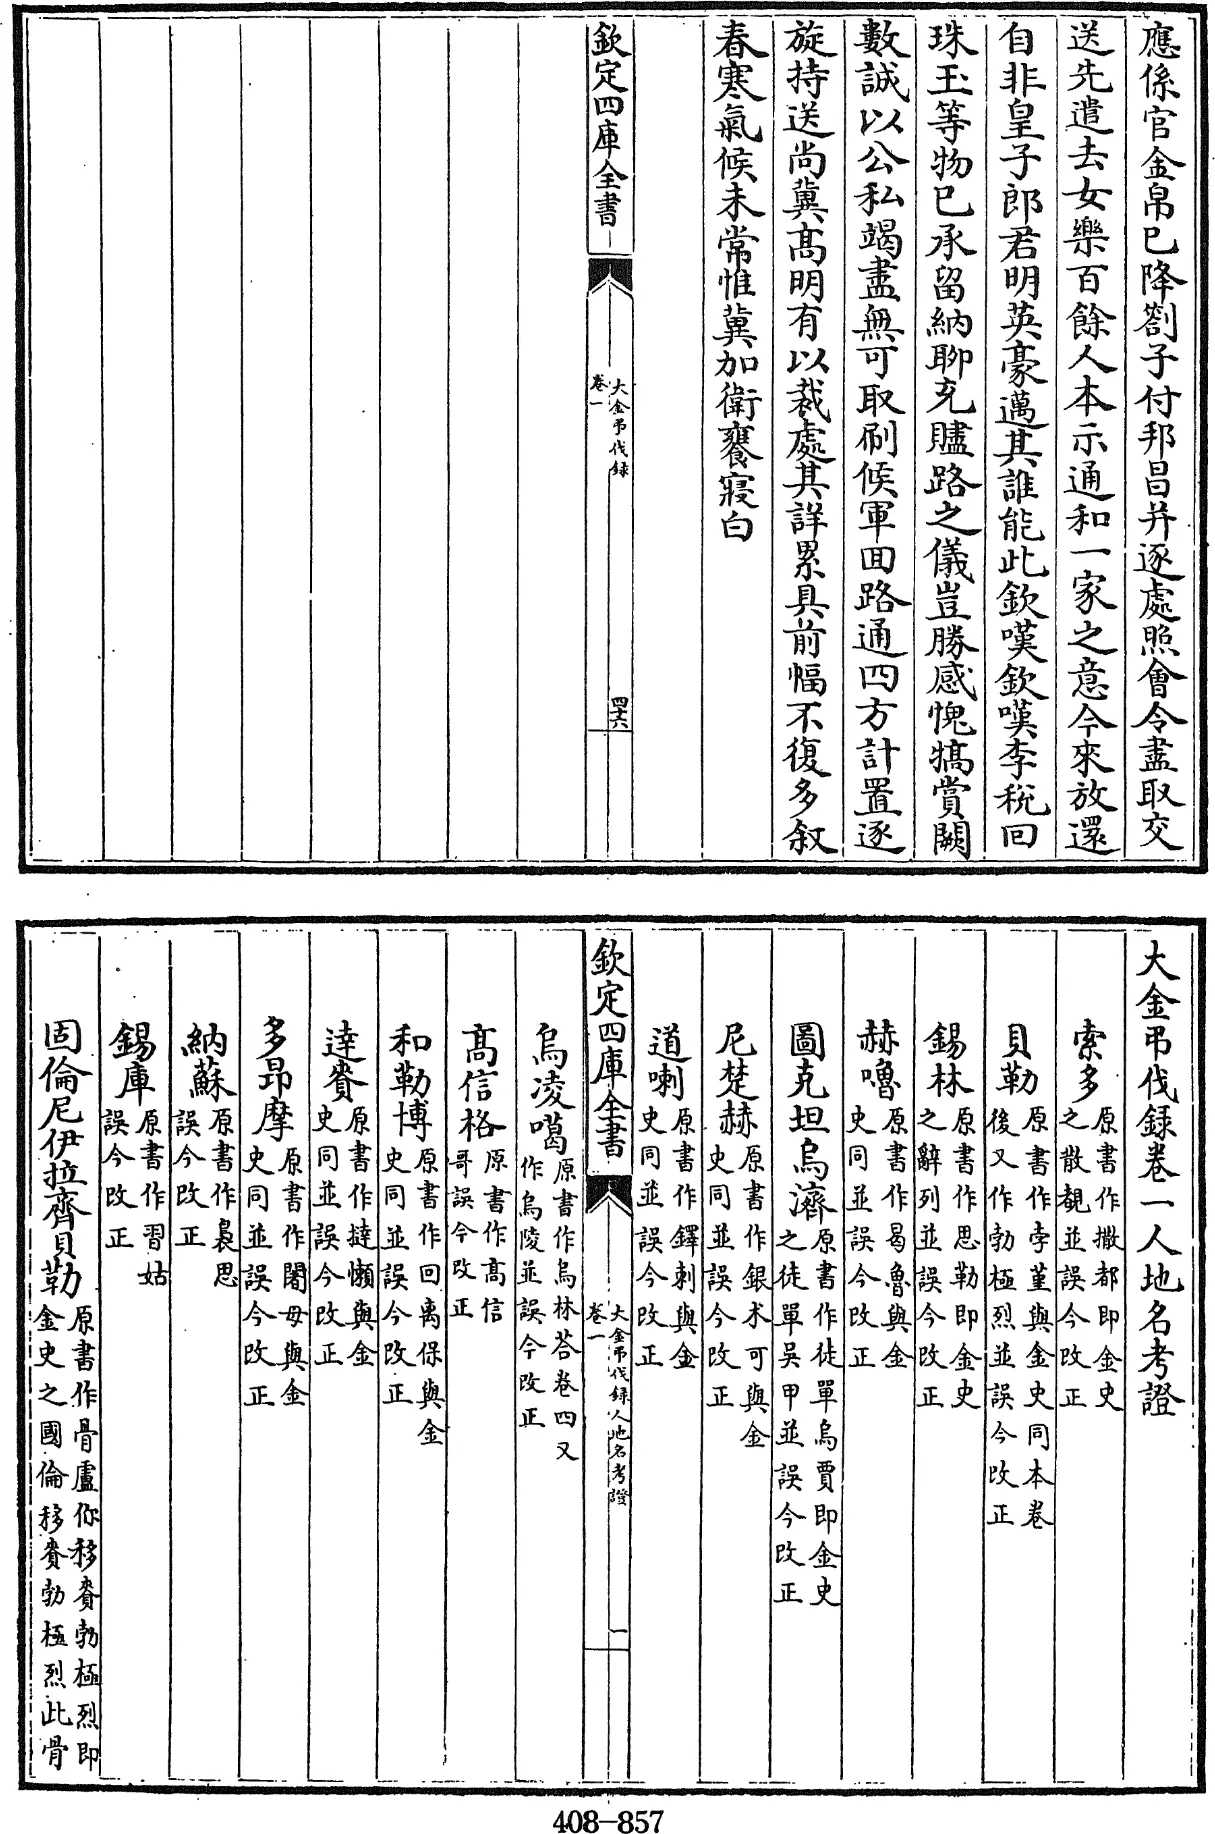 應係官金帛已降劄子付邦昌并逐處照會令盡取交
送先遣去女樂百餘人本示通和一家之意今來放還
自非皇子郎君明英豪邁其誰能此欽嘆欽嘆李稅回
珠玉等物已承留納聊充贐路之儀豈勝感愧犒賞闕
數誠以公私竭盡無可取刷候軍回路通四方計置逐
旋持送尚冀髙明有以裁處其詳累具前幅不復多叙
春寒氣候未常惟冀加衛饔寢白
欽定四庫全書
大金弔伐錄
卷一
四十六
大金弔伐錄卷一人地名考證
索多原書作撒都即金史
之散覩並誤今改正
貝勒原書作孛堇與金史同本卷
後又作勃極烈並誤今改正
錫林原書作思勒即金史
之辭列並誤今改正
赫嚕原書作曷魯與金
史同並誤今改正
圖克坦烏濟原書作徒單烏賈即金史
之徒單吳甲並誤今改正
尼楚赫原書作銀术可與金
史同並誤今改正
道喇原書作鐸刺與金
史同並誤今改正
欽定四庫全書
大金弔伐錄人地名考證
卷一
一
烏凌噶原書作烏林荅卷四又
作烏陵並誤今改正
髙信格原書作髙信
哥誤今改正
和勒博原書作回离保與金
史同並誤今改正
達賚原書作撻懶與金
史同並誤今改正
多昂摩原書作闍母與金
史同並誤今改正
納蘇原書作裊思
誤今改正
錫庫原書作習姑
誤今改正
固倫尼伊拉齊貝勒原書作骨盧你移賚勃極烈即
金史之國倫移賚勃極烈此骨
408-857